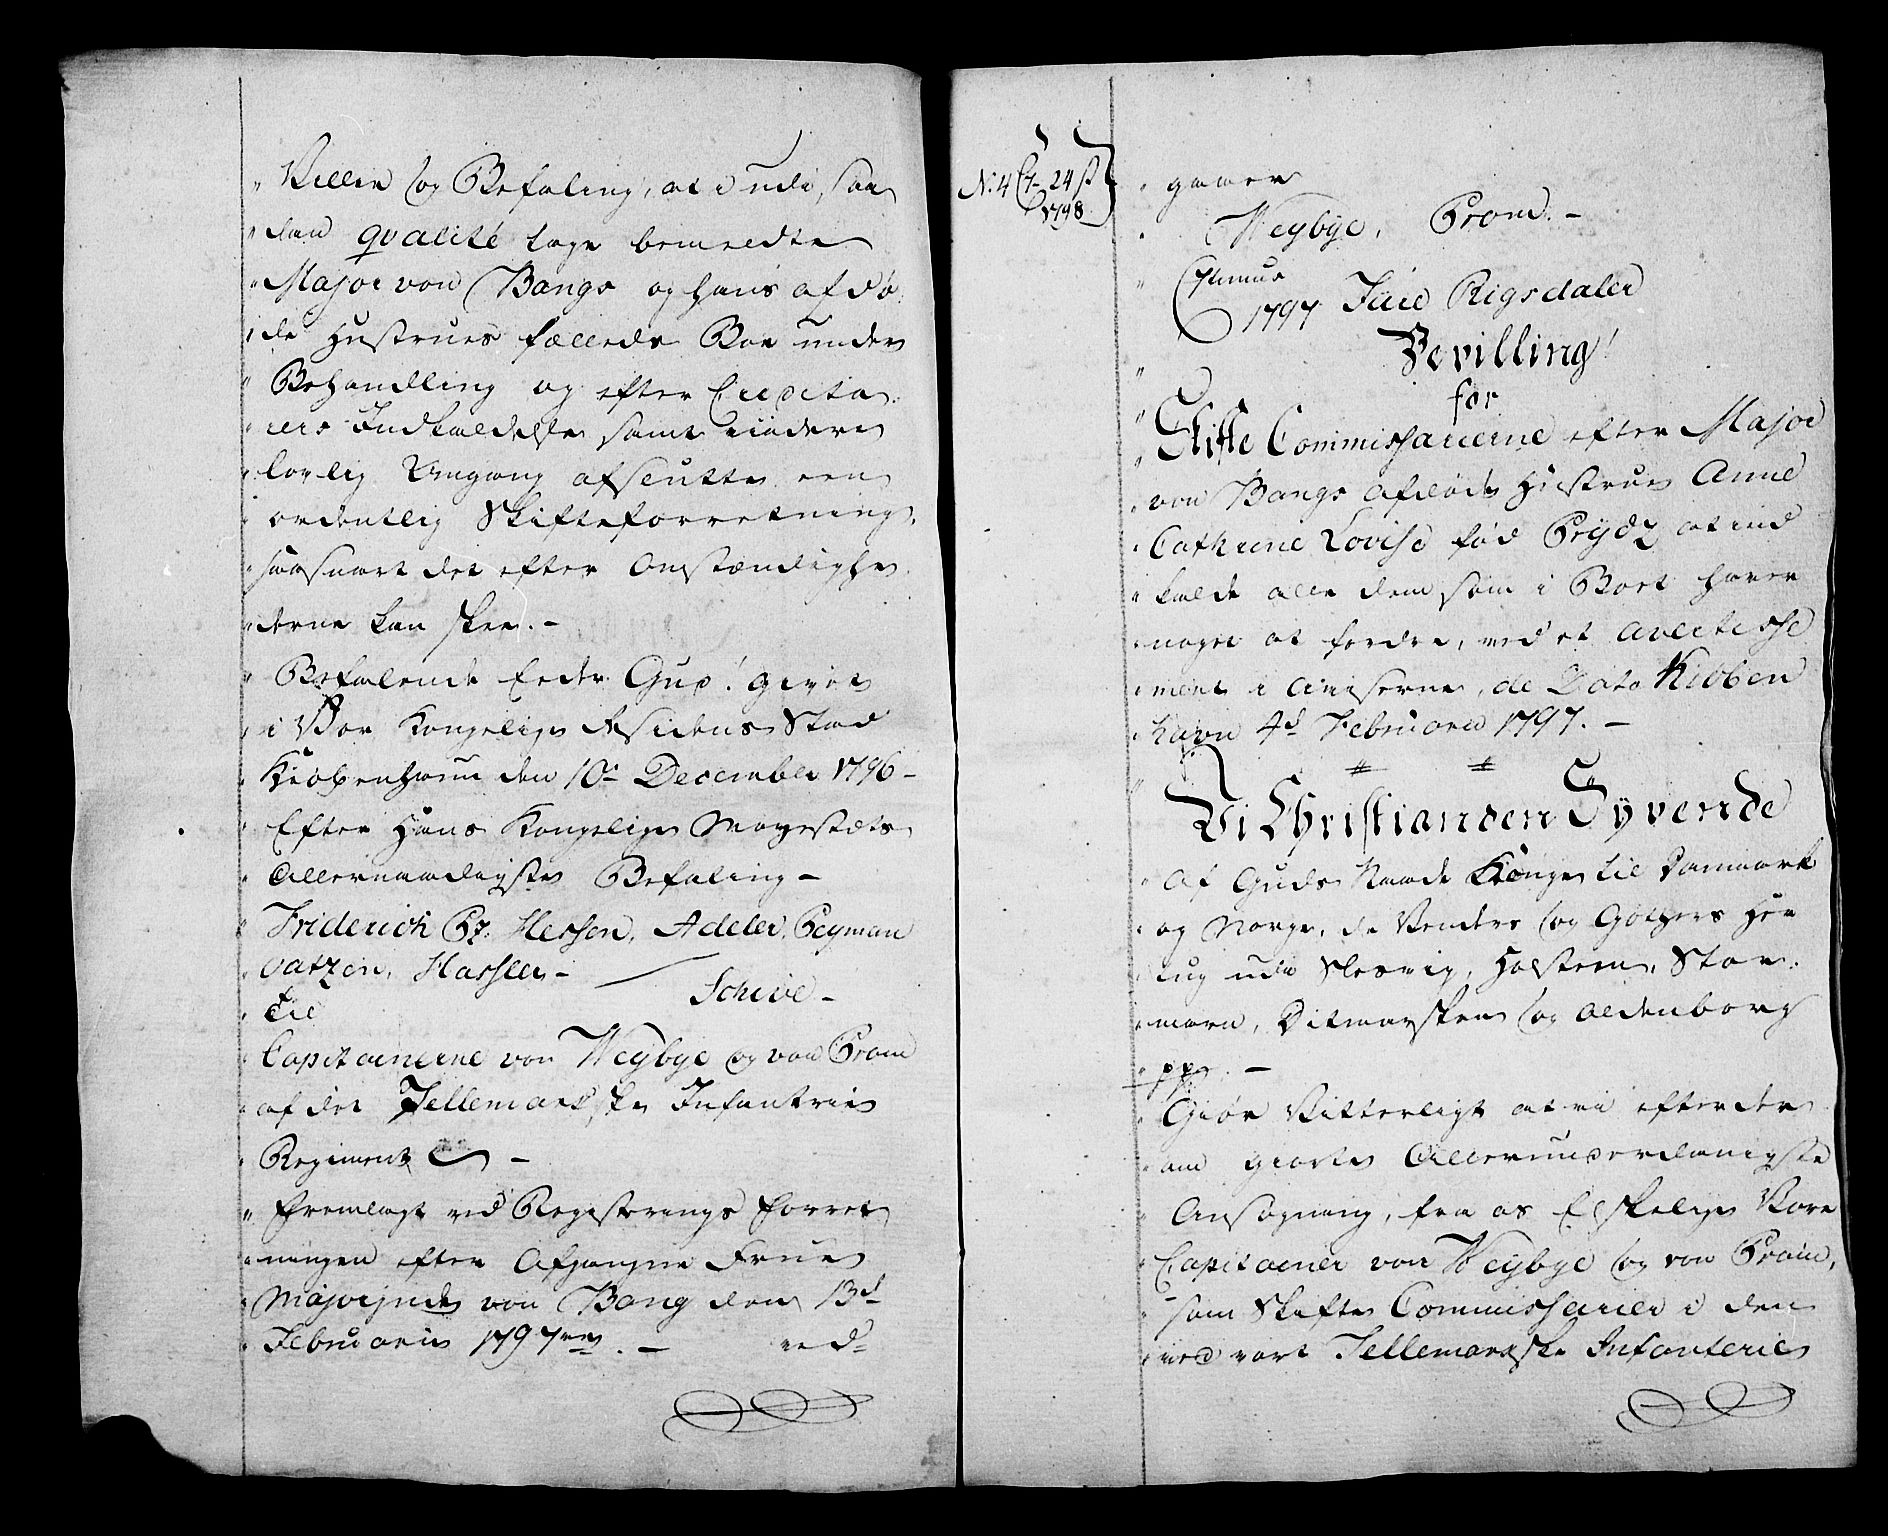 Villie og Befaling, at i udi saa
dan qvalité tage bemeldte
Major von Bangs og hans afdø
de Hustrues fælleds Boe under
Behandling og efter Credito
rers Indkaldelse samt videre
lovlig Omgang afslutte een
ordentlig Skifteforretning,
saasnart det efter Omstændighe
derne kan skee. –
Befalende Eeder Gud! Givet
i Vor Kongelige Residens Stad
Kiøbenhavn den 10de December 1796 –
Efter Hans Kongelige Mayestæts
Allernaadigste Befaling –
Friderich Pz. Hessen, Adeler, Peyman
Hassler –
Schive –
Til
Capitainerne von Weybye og von Prom
af det Tellemarkske Infanterie
Regiment
Fremlagt ved Registerings Forret
ningen efter Afgangne Frue
Majorinde von Bang den 13d
Februarii 1797 –
ved
N: 4 24 ß
1798
Weybye, Prom. –
1797 Tive Rigsdaler
Bevilling
for
Skifte Commissarierne efter Major
von Bangs Afdøde Hustrue Anne
Cathrine Lovise fød Prydz at ind
kalde alle dem som i Boet haver
noget at fordre, ved et avertisse
ment i Aviserne, de Dato Kiöben
havn 4d Februarii 1797. –
Vi Christian den Syvende
Af Guds Naade Konge til Danmark
og Norge, de Venders og Gothers Her
tug udi Slesvig, Holsteen, Stor
marn, Ditmarsken og Oldenborg
pp. –
Giør Vitterligt at vi efter der
om giorte Allerunderdanigste
Ansøgning, fra os Elskelige Vore
Capitainer von Weybye og von Prom,
som Skifte Commissarier i den
ved vort Tellemarkske Infanterie